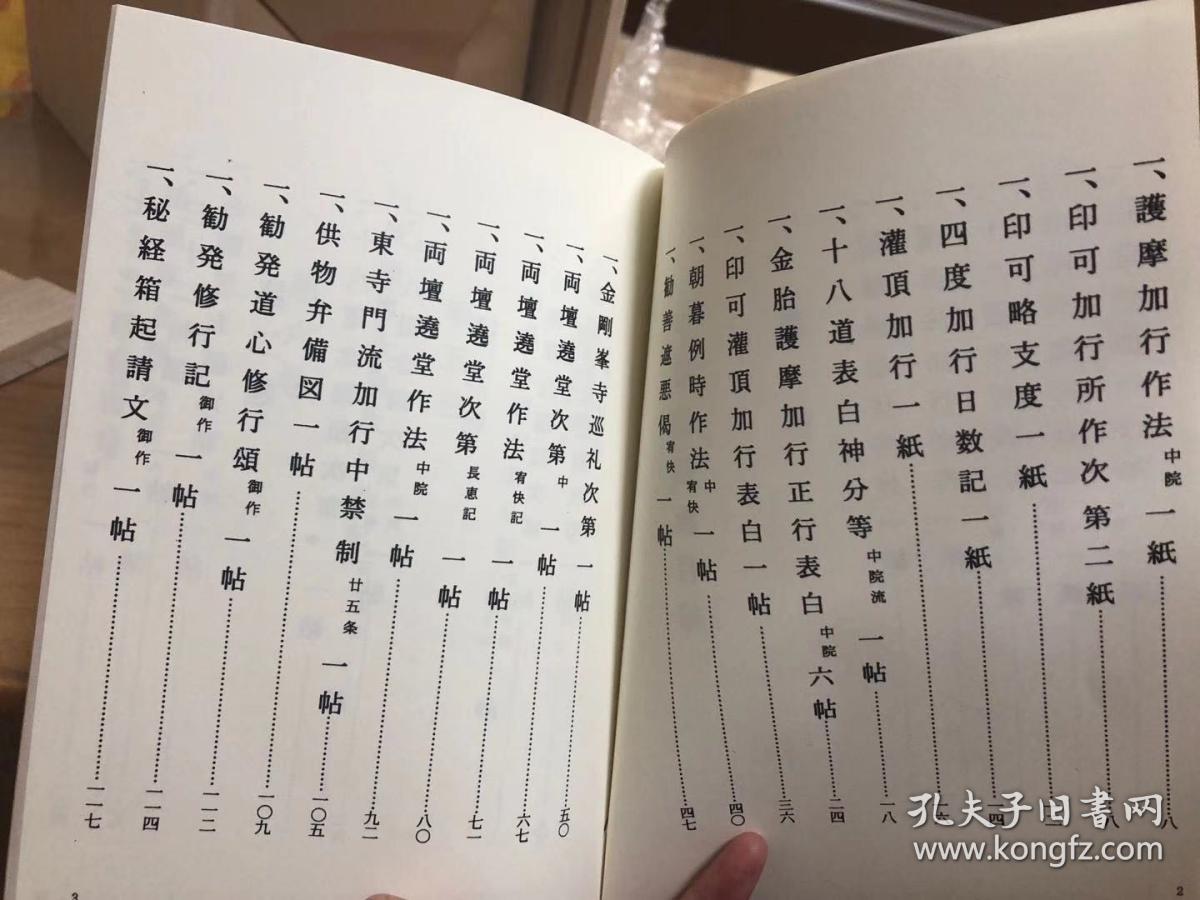 一、護摩加行作法 中院 一紙……八
一、印可加行所作次第二紙……八
一、印可略支度一紙……
一、四度加行日数記一紙……一四
一、灌頂加行一紙……一六
一、十八道表白神分等 中院流 一帖……一八
一、金胎護摩加行正行表白 中院 六帖……二四
一、印可灌頂加行表白一帖……三六
一、朝暮例時作法 中 宥快 一帖……四〇
一、勧善遮悪偈 宥快 一帖……四七
2
一、金剛峯寺巡礼次第一帖……五〇
一、両壇遶堂次第 中 一帖……六七
一、両壇遶堂作法 宥快記 一帖……七一
一、両壇遶堂次第 長恵記 一帖……八〇
一、両壇遶堂作法 中院 一帖……九二
一、東寺門流加行中禁制 廿五条 一帖……一〇五
一、供物弁備図一帖……一〇九
一、勧発道心修行頌 御作 一帖……一一二
一、勧発修行記 御作 一帖……一一四
一、秘経箱起請文 御作 一帖……一一七
3
孔夫子旧书网
www.kongfz.com